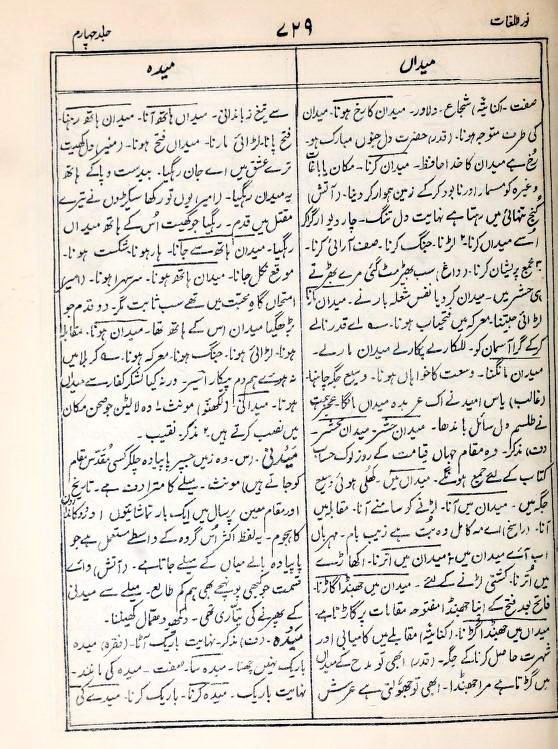 نور اللغات
۷۲۹
جلد چہارم
میداں
صفت۔ (کنایۃً) شجاع۔ دلاور۔ میدان کا رخ ہونا۔ میدان
کی طرف متوجہ ہونا۔ (قدر) حضرت دل جنوں مبارک ہو۔
رخ ہے میدان کا خدا حافظ۔ میدان کرنا۔ مکان یا باغات
وغیرہ کو مسمار اور نابود کر کے زمین ہموار کر دینا۔ (آتش)
کنج تنہائی میں رہتا ہے نہایت دل تنگ۔ چار دیوار گراکر
اسے میداں کرنا۔ ۲ لڑنا۔ جنگ کرنا۔ صف آرائی کرنا۔
۳ مجمع پریشان کرنا۔ (داغ) سب بھیڑ مٹ گئی مرے بھڑتے
ہی حشر میں۔ میدان کر دیا نفس شعلہ بار نے۔ میدان مارنا
لڑائی جیتنا۔ معرکہ میں فتحیاب ہونا۔ ؎ اے قدر نالے
کر کے گرا آسمان کو۔ للکارے پکارے میدان مارے۔
میدان مانگنا۔ وسعت کا خواہاں ہونا۔ وسیع جگہ چاہنا۔
(غالب) یاس امید نے اک عربدہ میداں مانگا۔ عجز ہمت
نے طلسم دل سائل باندھا۔ میدان حشر۔ میدان محشر۔
(ف) مذکر۔ وہ مقام جہاں قیامت کے روز لوگ حساب
کتاب کے لئے جمع ہونگے۔ میداں میں۔ کھلی ہوئی وسیع
جگہ میں۔ میدان میں آنا۔ لڑنے کو سامنے آنا۔ مقابلہ میں
آنا۔ (راسخ) اے مہ کامل وہ بت ہے زیب بام۔ مہرباں
اب آئے میدان میں۔ میدان میں اترنا۔ اکھاڑے
میں اترنا۔ کشتی لڑنے کے لئے۔ میدان میں جھنڈا گاڑنا۔
فاتح بعد فتح کے اپنا جھنڈا مفتوحہ مقامات پر گاڑتا ہے۔
میداں میں جھنڈا گڑنا۔ (کنایۃً) مقابلے میں کامیابی اور
شہرت حاصل کرنا کے جگہ۔ (قدر) ابھی تو مدح کے میداں
میں گڑتا ہے مرا جھنڈا۔ ابھی تو جھولتی ہے عرش
میدہ
سے تیغ زباندانی۔ میداں ہاتھ آنا۔ میدان ہاتھ رہنا۔
فتح پانا۔ لڑائی مارنا۔ میداں فتح ہونا۔ (منیر) کھیت
ترے عشق میں اے جان رہگیا۔ بیدست و پا کے ہاتھ
یہ میدان رہگیا۔ (امیر) یوں تو رکھا سیکڑوں نے تیرے
مقتل میں قدم۔ رہگیا جو کھیت اس کے ہاتھ میداں
رہگیا۔ میدان ہاتھ سے جانا۔ ہارہونا۔ شکست ہونا۔
موقع نکل جانا۔ میدان ہاتھ ہونا۔ سر سہرا ہونا۔ (امیر)
امتحاں گاہ محبت میں تھے سب ثابت مگر۔ دو قدم جو
بڑھ گیا میدان اس کے ہاتھ تھا۔ میدان ہونا۔ مقابلہ
ہونا۔ لڑائی ہونا۔ جنگ ہونا۔ معرکہ ہونا۔ ؎ کربلا میں
نہ ہوے ہم دم پیکار اسیر۔ ورنہ کیا لشکر کفار سے میداں
ہوتا۔ میدانی۔ (لکھنؤ) مونث۔ ۱ وہ لالٹین جو صحن مکان
میں نصب کرتے ہیں۔ ۲ مذکر۔ نقیب۔
میدنی۔ (س۔ وہ زمین جسپر پاپیادہ چلکر کسی مقدس مقام
کو جاتے ہیں) مونث۔ میلے کا مترادف ہے۔ تاریخ
اور مقام معین پر سال میں ایک بار تماشائیوں اور دوکانداروں
کا ہجوم۔ یہ لفظ اکثر اس گروہ کے واسطے مستعمل ہے جو
پا پیادہ بالے میاں کے میلے جاتا ہے۔ (آتش) وائے
قسمت جو کبھی پہنچے بھی ہم گم طالع۔ میلے سے میدنی
کے پھرنے کی تیاری تھی۔ دیکھو دھمال کھیلنا۔
میدہ۔ (ف) مذکر۔ نہایت باریک آٹا۔ (فقرہ) میدہ
باریک نہیں چھنا۔ میدہ سا۔ صفت۔ میدہ کی مانند۔
نہایت باریک۔ میدہ کرنا۔ باریک کرنا۔ میدے کی